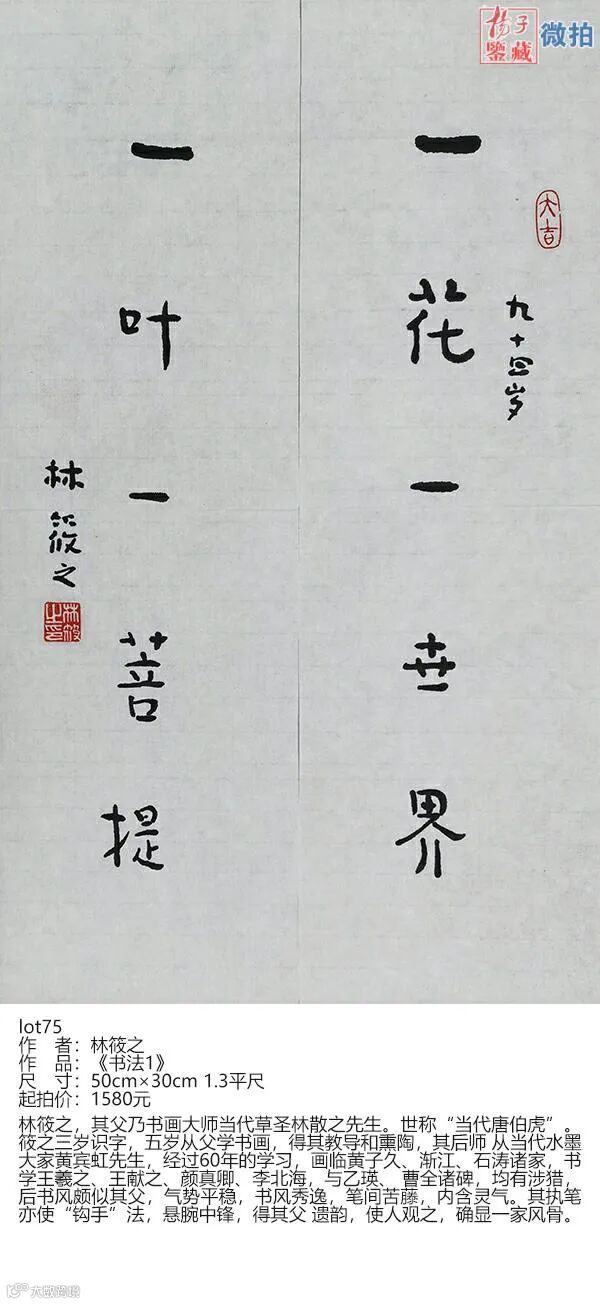 揚子
鑒藏
微拍
大吉
九十四岁
一花一世界
一叶一菩提
林筱之
林筱之印
lot75
作 者：林筱之
作 品：《书法1》
尺 寸：50cm×30cm 1.3平尺
起拍价：1580元
林筱之，其父乃书画大师当代草圣林散之先生。世称“当代唐伯虎”。
筱之三岁识字，五岁从父学书画，得其教导和熏陶，其后师 从当代水墨
大家黄宾虹先生，经过60年的学习，画临黄子久、渐江、石涛诸家，书
学王羲之、王献之、颜真卿、李北海，与乙瑛、 曹全诸碑，均有涉猎，
后书风颇似其父，气势平稳，书风秀逸，笔间苦藤，内含灵气。其执笔
亦使“钩手”法，悬腕中锋，得其父 遗韵，使人观之，确显一家风骨。
大数跨境